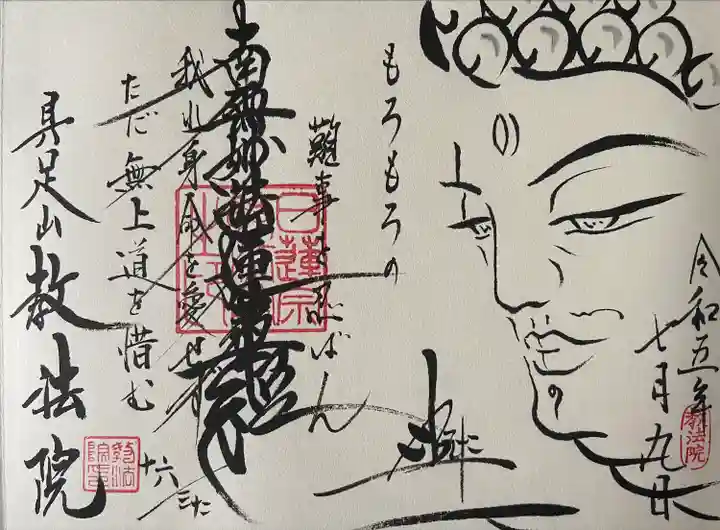 令和五年
七月九日
教法院
もろもろの
難事を忍ばん
南無妙法蓮華経
日蓮宗
我れ身命を愛せず
ただ無上道を惜む
具足山 教法院
教法